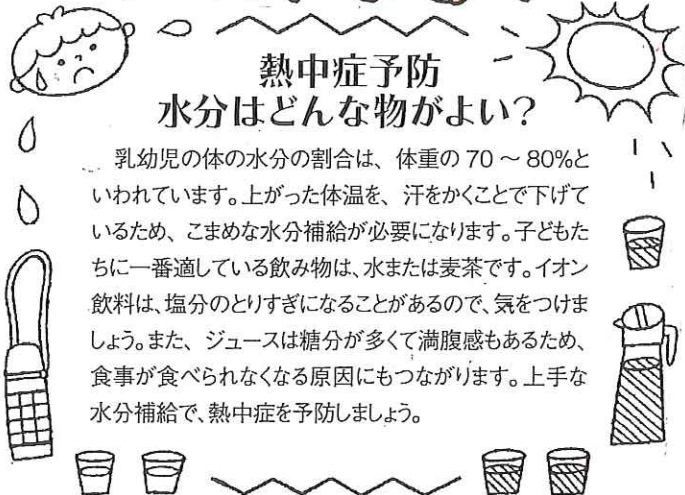 熱中症予防
水分はどんな物がよい？
乳幼児の体の水分の割合は、体重の70～80%と
いわれています。上がった体温を、汗をかくことで下げて
いるため、こまめな水分補給が必要になります。子どもた
ちに一番適している飲み物は、水または麦茶です。イオン
飲料は、塩分のとりすぎになることがあるので、気をつけま
しょう。また、ジュースは糖分が多くて満腹感もあるため、
食事が食べられなくなる原因にもつながります。上手な
水分補給で、熱中症を予防しましょう。